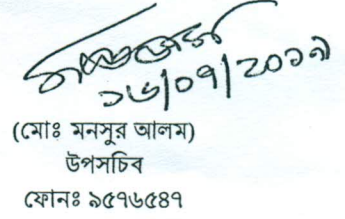 ১৬/০৭/২০১৭
(মোঃ মনসুর আলম)
উপসচিব
ফোনঃ ৯৫৭৬৫৪৭